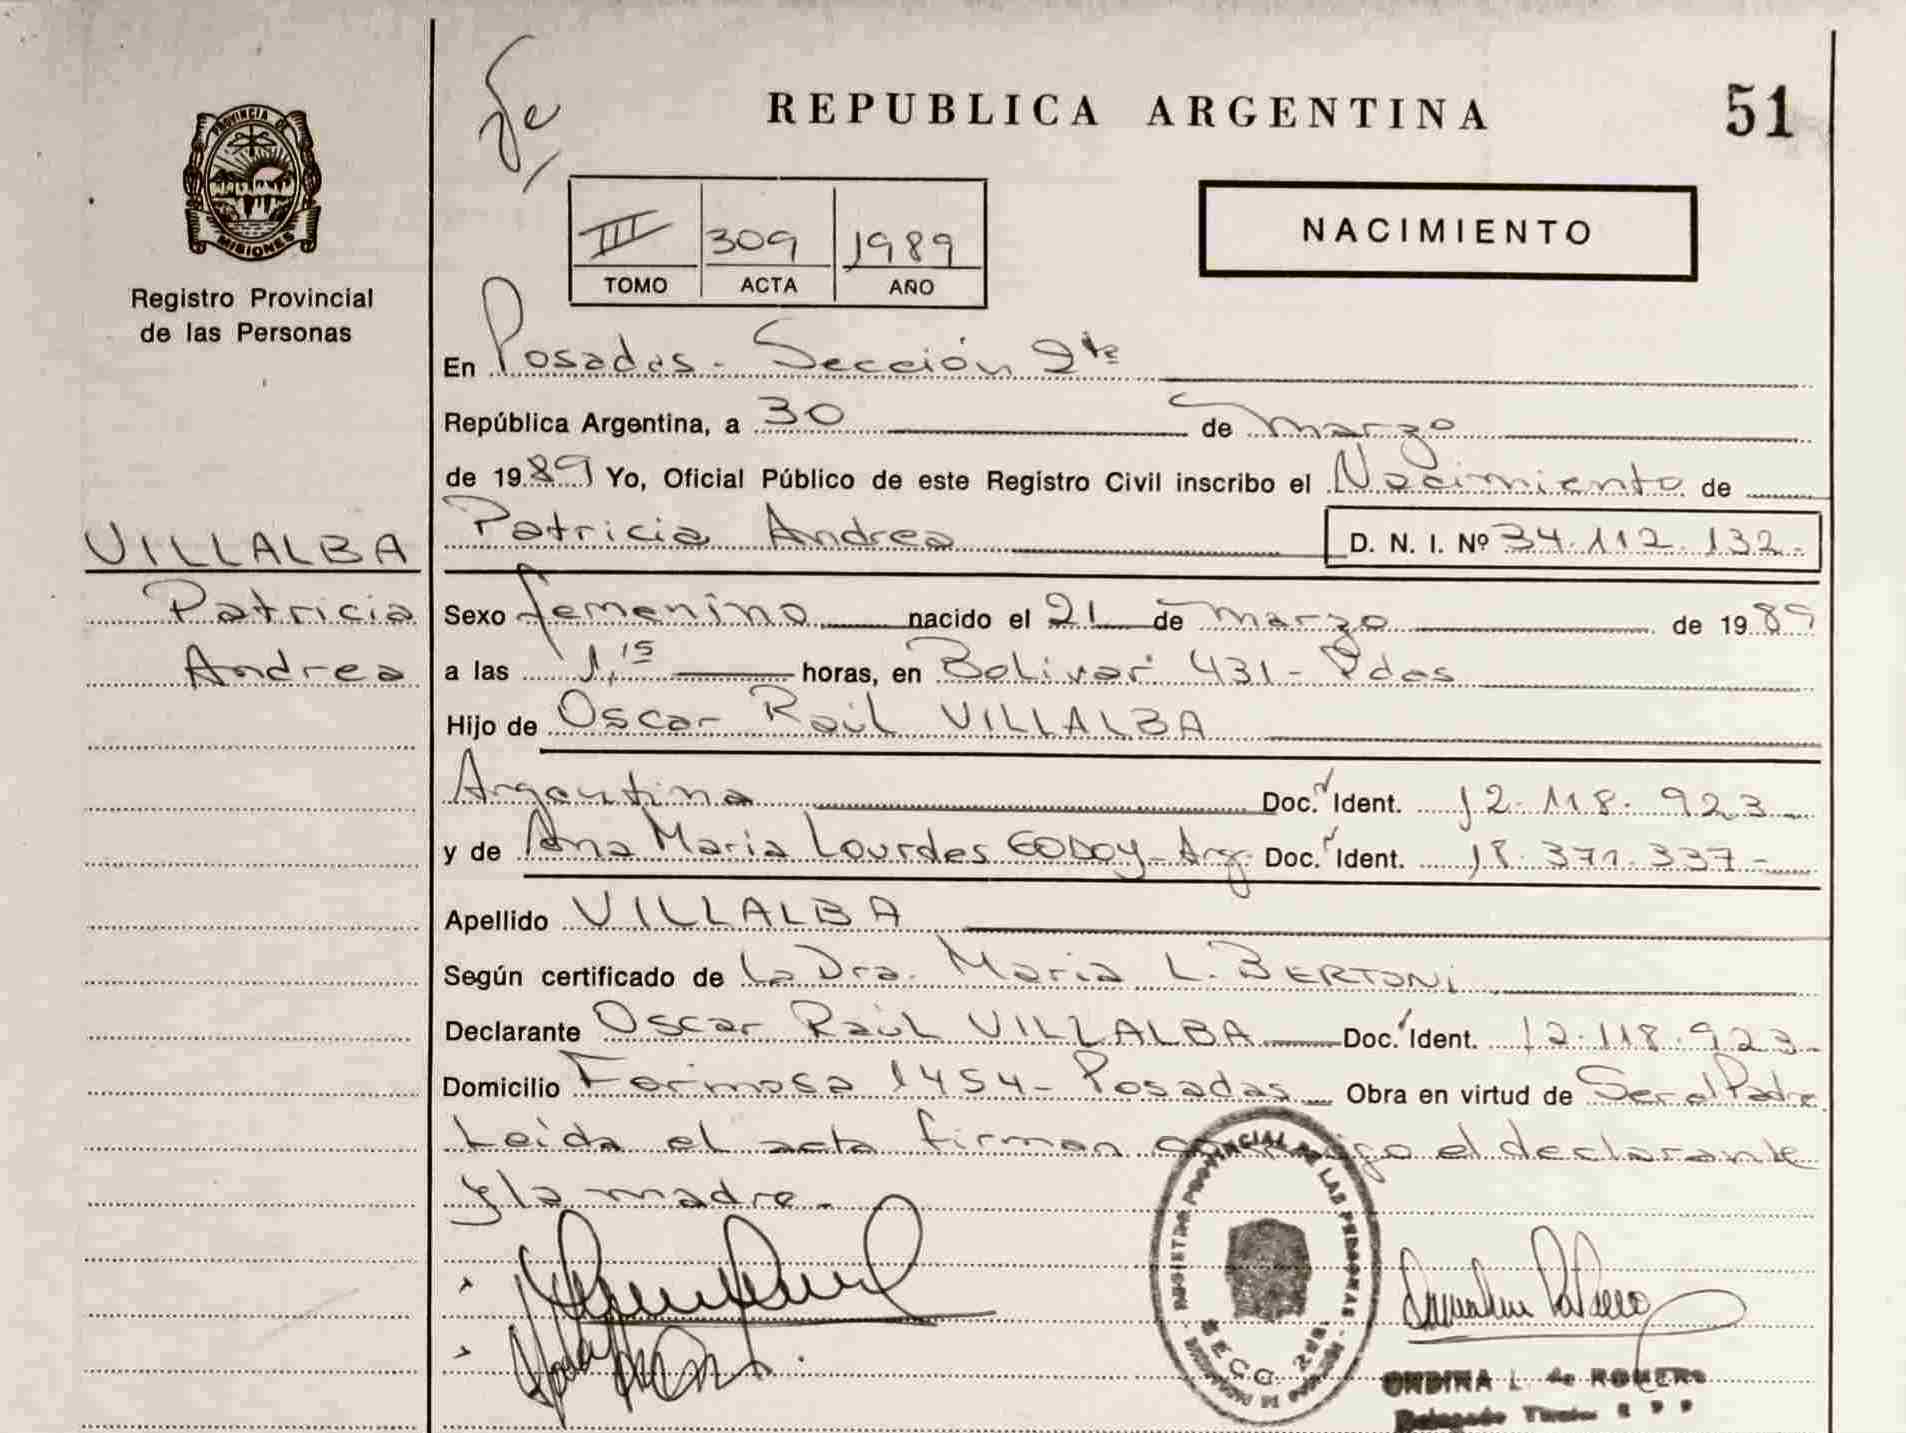 REPUBLICA ARGENTINA
51
PROVINCIA DE
MISIONES
Registro Provincial
de las Personas
III 309 1989
TOMO ACTA AÑO
NACIMIENTO
En Posadas - Sección 2da
República Argentina, a 30 de Marzo
de 1989 Yo, Oficial Público de este Registro Civil inscribo el Nacimiento de
Patricia Andrea D. N. I. Nº 34.112.132-
VILLALBA
Patricia
Andrea
Sexo femenino nacido el 21 de Marzo de 1989
a las 1,15 horas, en Bolivar 431 - Pdas
Hijo de Oscar Raúl VILLALBA
Argentina Doc. Ident. 12.118.923-
y de Ana Maria Lourdes GODOY - Arg. Doc. Ident. 18.371.337-
Apellido VILLALBA
Según certificado de La Dra. Maria L. BERTONI
Declarante Oscar Raúl VILLALBA Doc. Ident. 12.118.923-
Domicilio Formosa 1454 - Posadas Obra en virtud de Ser el Padre
Leída el acta firman conmigo el declarante
y la madre.
REGISTRO PROVINCIAL DE LAS PERSONAS
SECC. 2da.
ONDINA L. de ROMERO
Delegado Titular